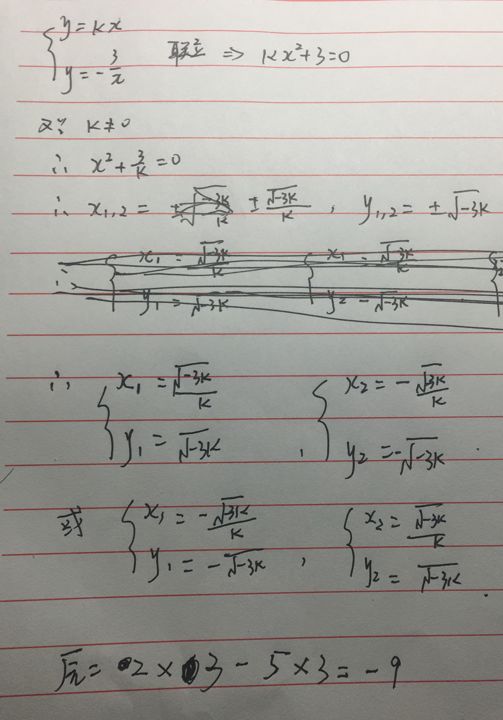 { y = kx
y = -3/x 联立 ⇒ kx²+3=0
又∵ k≠0
∴ x²+3/k=0
∴ x₁,₂ = ±√-3k/k , y₁,₂ = ±√-3k
∴ { x₁ = √-3k/k y₁ = √-3k , { x₂ = -√-3k/k y₂ = -√-3k .
或 { x₁ = -√-3k/k y₁ = -√-3k , { x₂ = √-3k/k y₂ = √-3k
原 = 2×3-5×3=-9